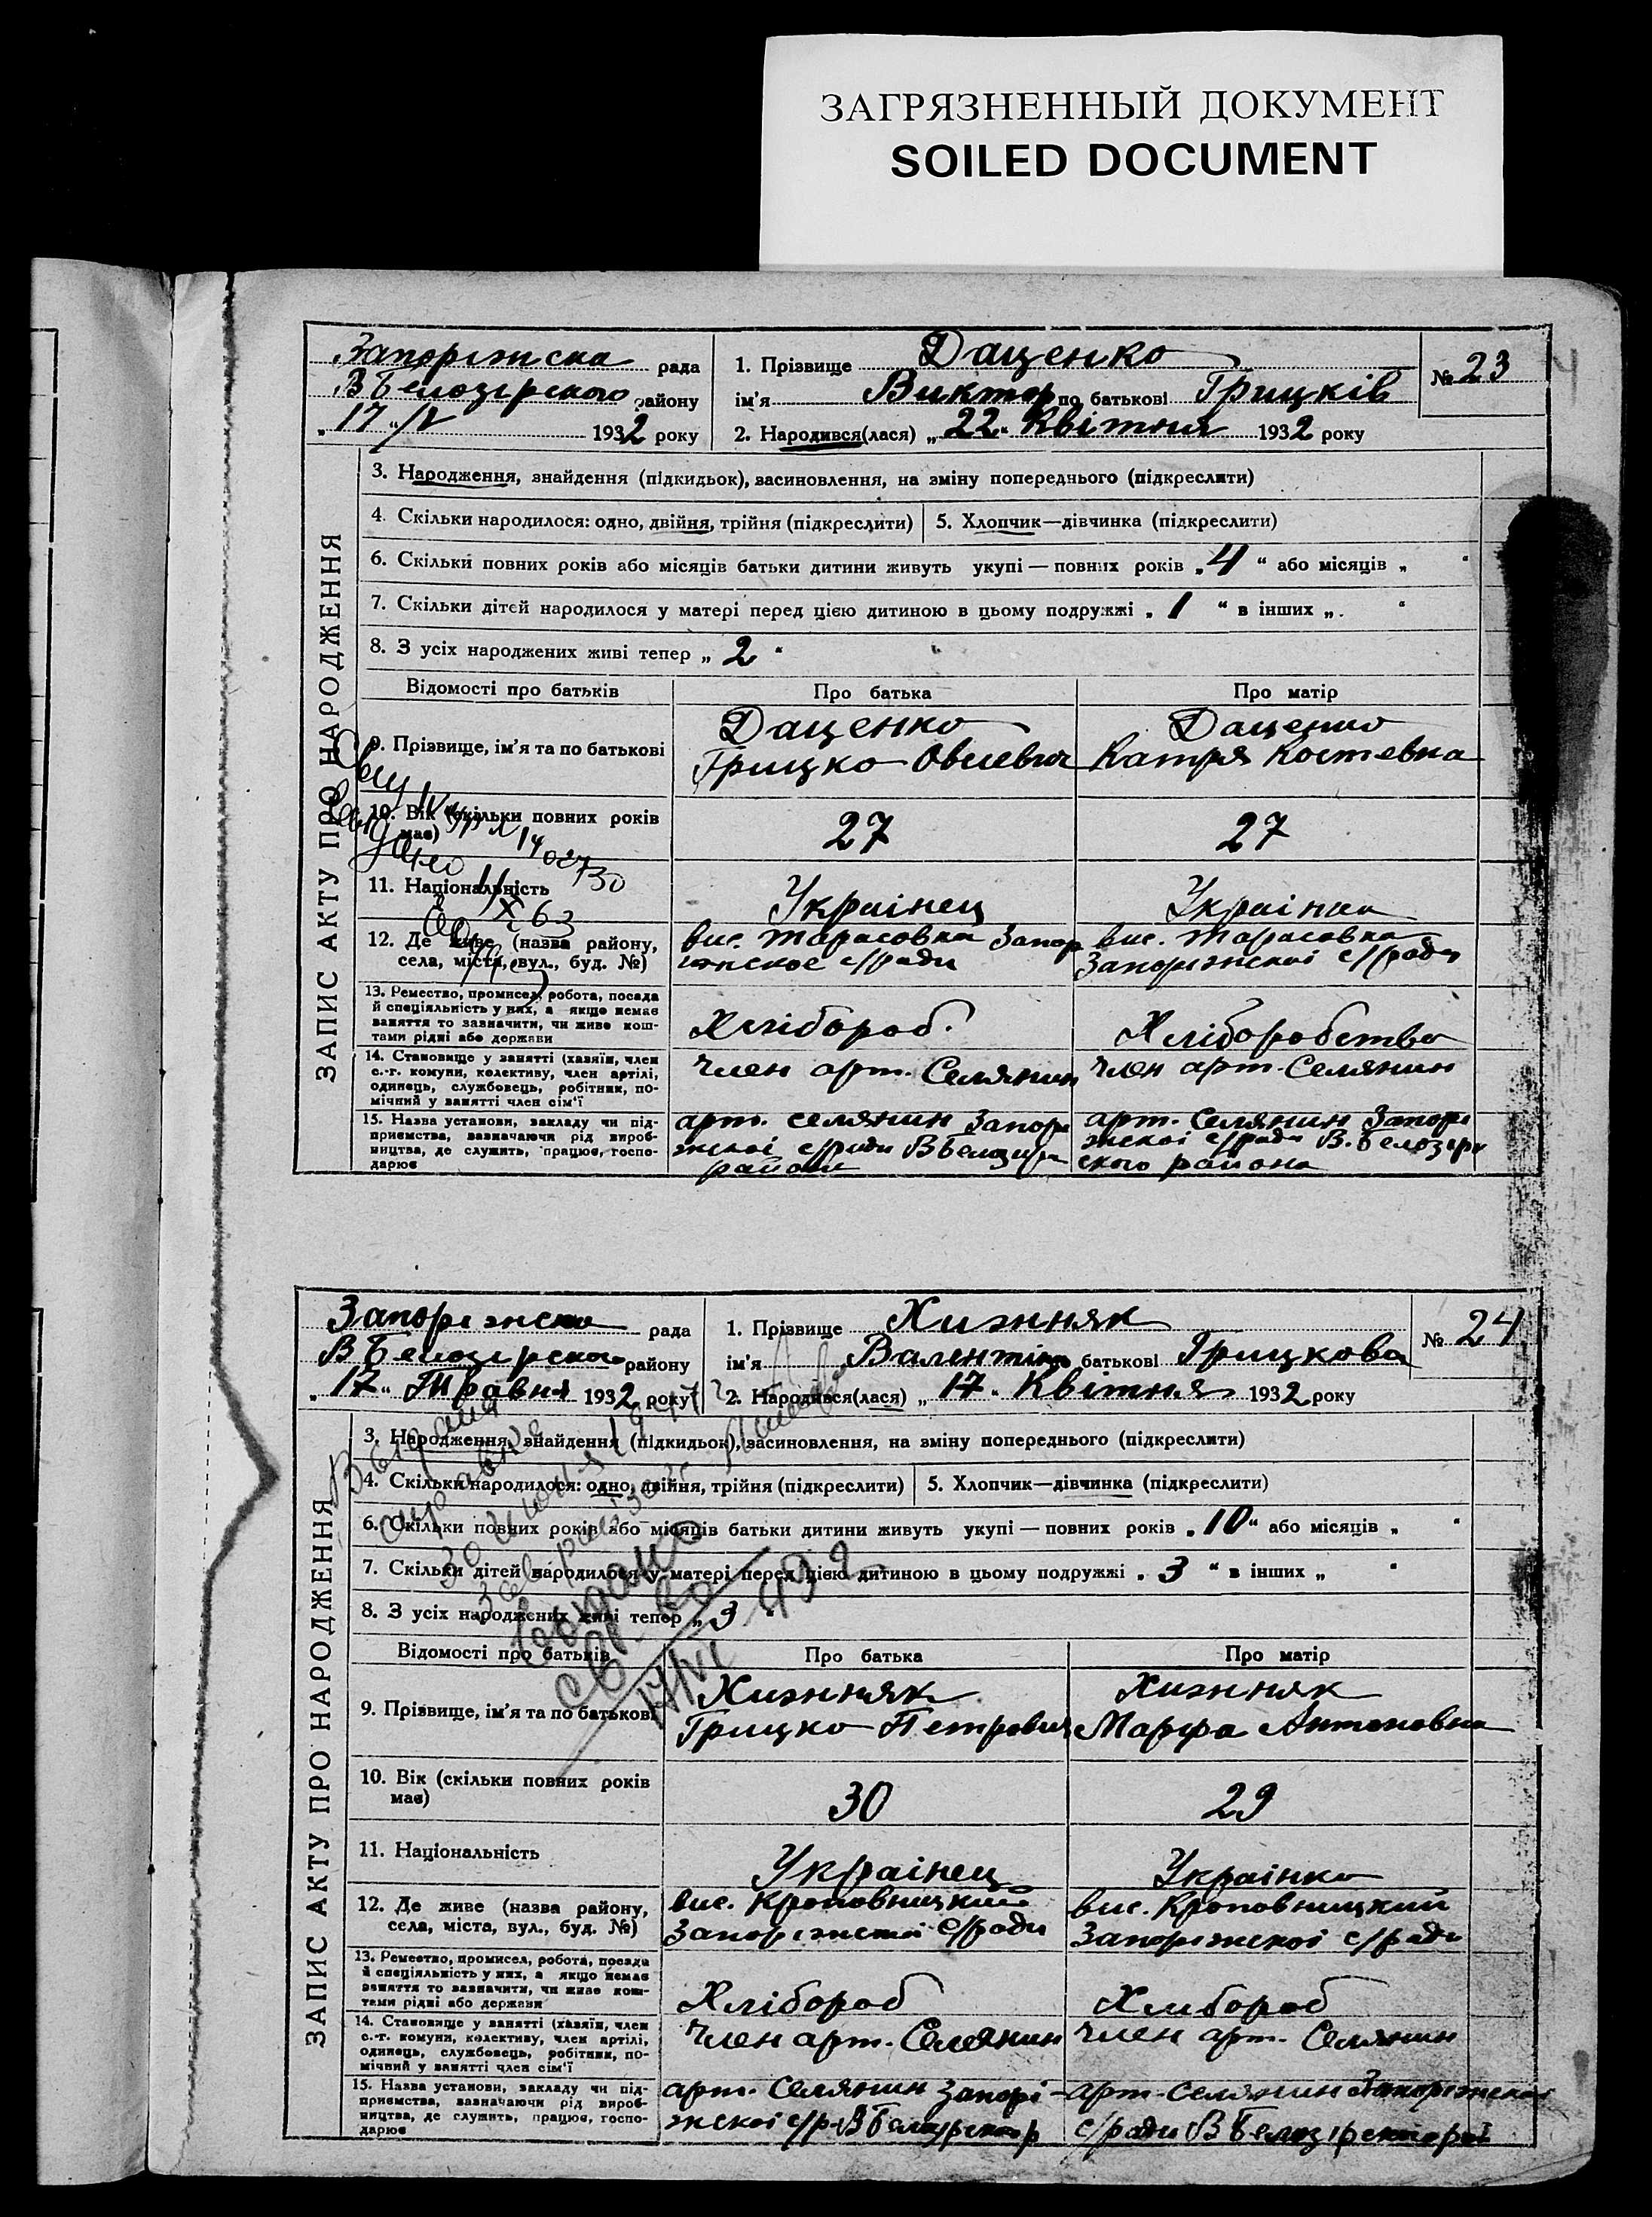 ЗАГРЯЗНЕННЫЙ ДОКУМЕНТ
SOILED DOCUMENT
ЗАПИС АКТУ ПРО НАРОДЖЕННЯ
Запоріжска рада
В Белозірского району
„17“/V 1932 року
1. Прізвище Даценко
ім'я Виктор по батькові Грицків
2. Народився(лася) „22“ Квітня 1932 року
№ 23
3. Народження, знайдення (підкидьок), засиновлення, на зміну попереднього (підкреслити)
4. Скільки народилося: одно, двійня, трійня (підкреслити) 5. Хлопчик—дівчинка (підкреслити)
6. Скільки повних років або місяців батьки дитини живуть укупі — повних років „4“ або місяців „ “
7. Скільки дітей народилося у матері перед цією дитиною в цьому подружжі „1“ в інших „ “
8. З усіх народжених живі тепер „2“
Відомості про батьків Про батька Про матір
9. Прізвище, ім'я та по батькові
Даценко
Грицко
Даценко
Катря Костевна
10. Вік (скільки повних років має) 27 27
11. Національність Украінец Украінка
12. Де живе (назва району, села, міста, вул., буд. №)
вис. Тарасовка Запор
с/ради
вис. Тарасовка
Запоріжскоі с/ради
13. Ремество, промисел, робота, посада
й спеціяльність у них, а якщо немає
заняття то зазначити, чи живе кош-
тами рідні або держави
Хлібороб. Хліборобство
14. Становище у занятті (хазяїн, член
с.-г. комуни, колективу, член артілі,
одинець, службовець, робітник, по-
мічний у занятті член сім'ї
Член арт. Селянин Член арт. Селянин
15. Назва установи, закладу чи під-
приємства, зазначаючи рід вироб-
ництва, де служить, працює, госпо-
дарює
арт. селянин Запорі
жскоі с/ради В Белозірск
района
арт. Селянин Запорі
жскоі с/ради В. Белозір
ского района
ЗАПИС АКТУ ПРО НАРОДЖЕННЯ
Запоріжска рада
В Белозірского району
„17“ Травня 1932 року
1. Прізвище Хижняк
ім'я Валентіна по батькові Грицкова
2. Народився(лася) „17“ Квітня 1932 року
№ 24
3. Народження, знайдення (підкидьок), засиновлення, на зміну попереднього (підкреслити)
4. Скільки народилося: одно, двійня, трійня (підкреслити) 5. Хлопчик—дівчинка (підкреслити)
6. Скільки повних років або місяців батьки дитини живуть укупі — повних років „10“ або місяців „ “
7. Скільки дітей народилося у матері перед цією дитиною в цьому подружжі „3“ в інших „ “
8. З усіх народжених живі тепер „3“
Выдана
справка
30 июня 1947
Видано
св-во
17/VI 1932
Відомості про батьків Про батька Про матір
9. Прізвище, ім'я та по батькові
Хижняк
Грицко Петрович
Хижняк
Марфа Антоновна
10. Вік (скільки повних років має) 30 29
11. Національність Украінец Украінка
12. Де живе (назва району, села, міста, вул., буд. №)
вис. Кроповницкий
Запоріжскоі с/ради
вис. Кроповницкий
Запоріжскоі с/ради
13. Ремество, промисел, робота, посада
й спеціяльність у них, а якщо немає
заняття то зазначити, чи живе кош-
тами рідні або держави
Хлібороб Хлибороб
14. Становище у занятті (хазяїн, член
с.-г. комуни, колективу, член артілі,
одинець, службовець, робітник, по-
мічний у занятті член сім'ї
Член арт. Селянин Член арт. Селянин
15. Назва установи, закладу чи під-
приємства, зазначаючи рід вироб-
ництва, де служить, працює, госпо-
дарює
арт. Селянин Запорі-
жскоі с/р В Белозірск р
арт. Селянин Запоріжскоі
с/ради В Белозірского